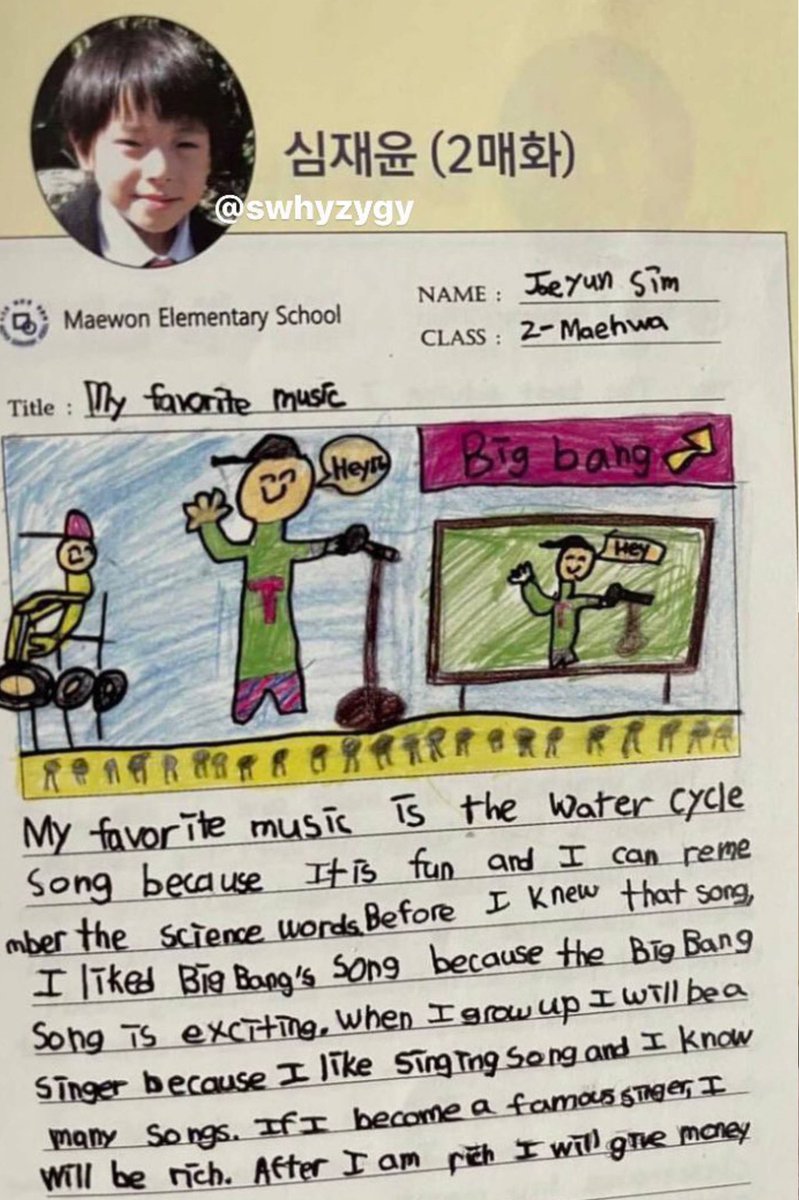 심재윤 (2매화)
@swhyzygy
NAME : Jaeyun Sim
Maewon Elementary School
CLASS : 2-Maehwa
Title : My favorite music
Hey
Big bang
Hey
T
T
My favorite music is the water cycle
song because It is fun and I can reme
mber the science words. Before I knew that song,
I liked Big Bang's song because the Big Bang
song is exciting. When I grow up I will be a
singer because I like singing song and I know
many songs. If I become a famous singer, I
will be rich. After I am rich I will give money